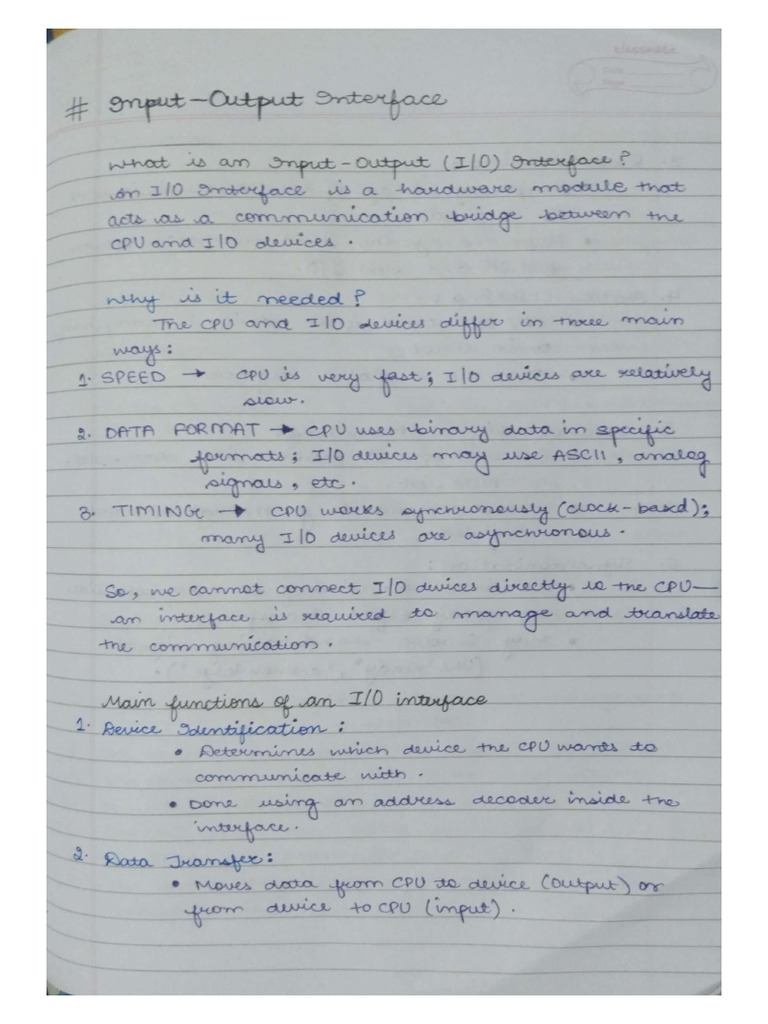 classmate
Date
Page
# Input-Output Interface
What is an Input-Output (I/O) Interface?
An I/O Interface is a hardware module that
acts as a communication bridge between the
CPU and I/O devices.
Why is it needed?
The CPU and I/O devices differ in three main
ways:
1. SPEED → CPU is very fast; I/O devices are relatively
slow.
2. DATA FORMAT → CPU uses binary data in specific
formats; I/O devices may use ASCII, analog
signals, etc.
3. TIMING → CPU works synchronously (clock-based);
many I/O devices are asynchronous.
So, we cannot connect I/O devices directly to the CPU—
an interface is required to manage and translate
the communication.
Main functions of an I/O interface
1. Device Identification:
• Determines which device the CPU wants to
communicate with.
• Done using an address decoder inside the
interface.
2. Data Transfer:
• Moves data from CPU to device (output) or
from device to CPU (input).